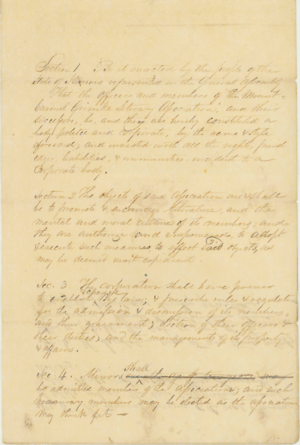 Section 1 Be it enacted by the people of the
State of Illinois represented in the General Assembly
That the officers and members of the
Literary Association, and their
successors, be and they are hereby constituted a
body politic and corporate, by the name & style
aforesaid, and invested with all the rights, privil
eges, liabilities, & immunities, incident to a
Corporate body.
Section 2 The object of said Association shall
be to promote & advance literature, and the
mental and moral culture of its members, and
they are authorized and empowered, to adopt
& execute such measures to effect said objects, as
may be deemed most expedient.
Sec. 3 The corporation shall have power
to establish by laws, & prescribe rules & regulations
for the admission & of its members,
and their government; election of their officers &
their duties; and the management of its property
& affairs.
Sec 4. Minors shall
be admitted members of the association, and such
honorary members may be elected as the association
may think fit —